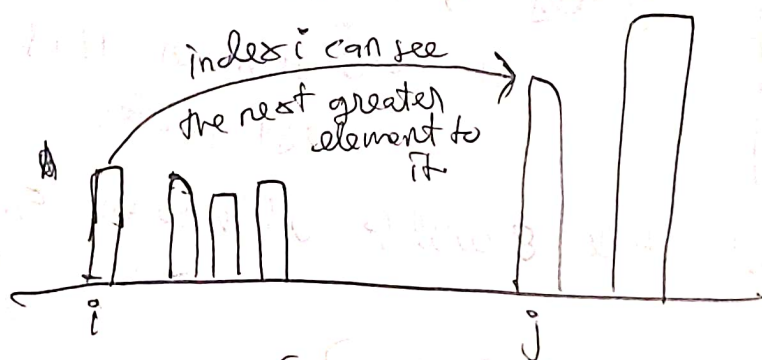 index i can see
the next greater
element to
it
i
j